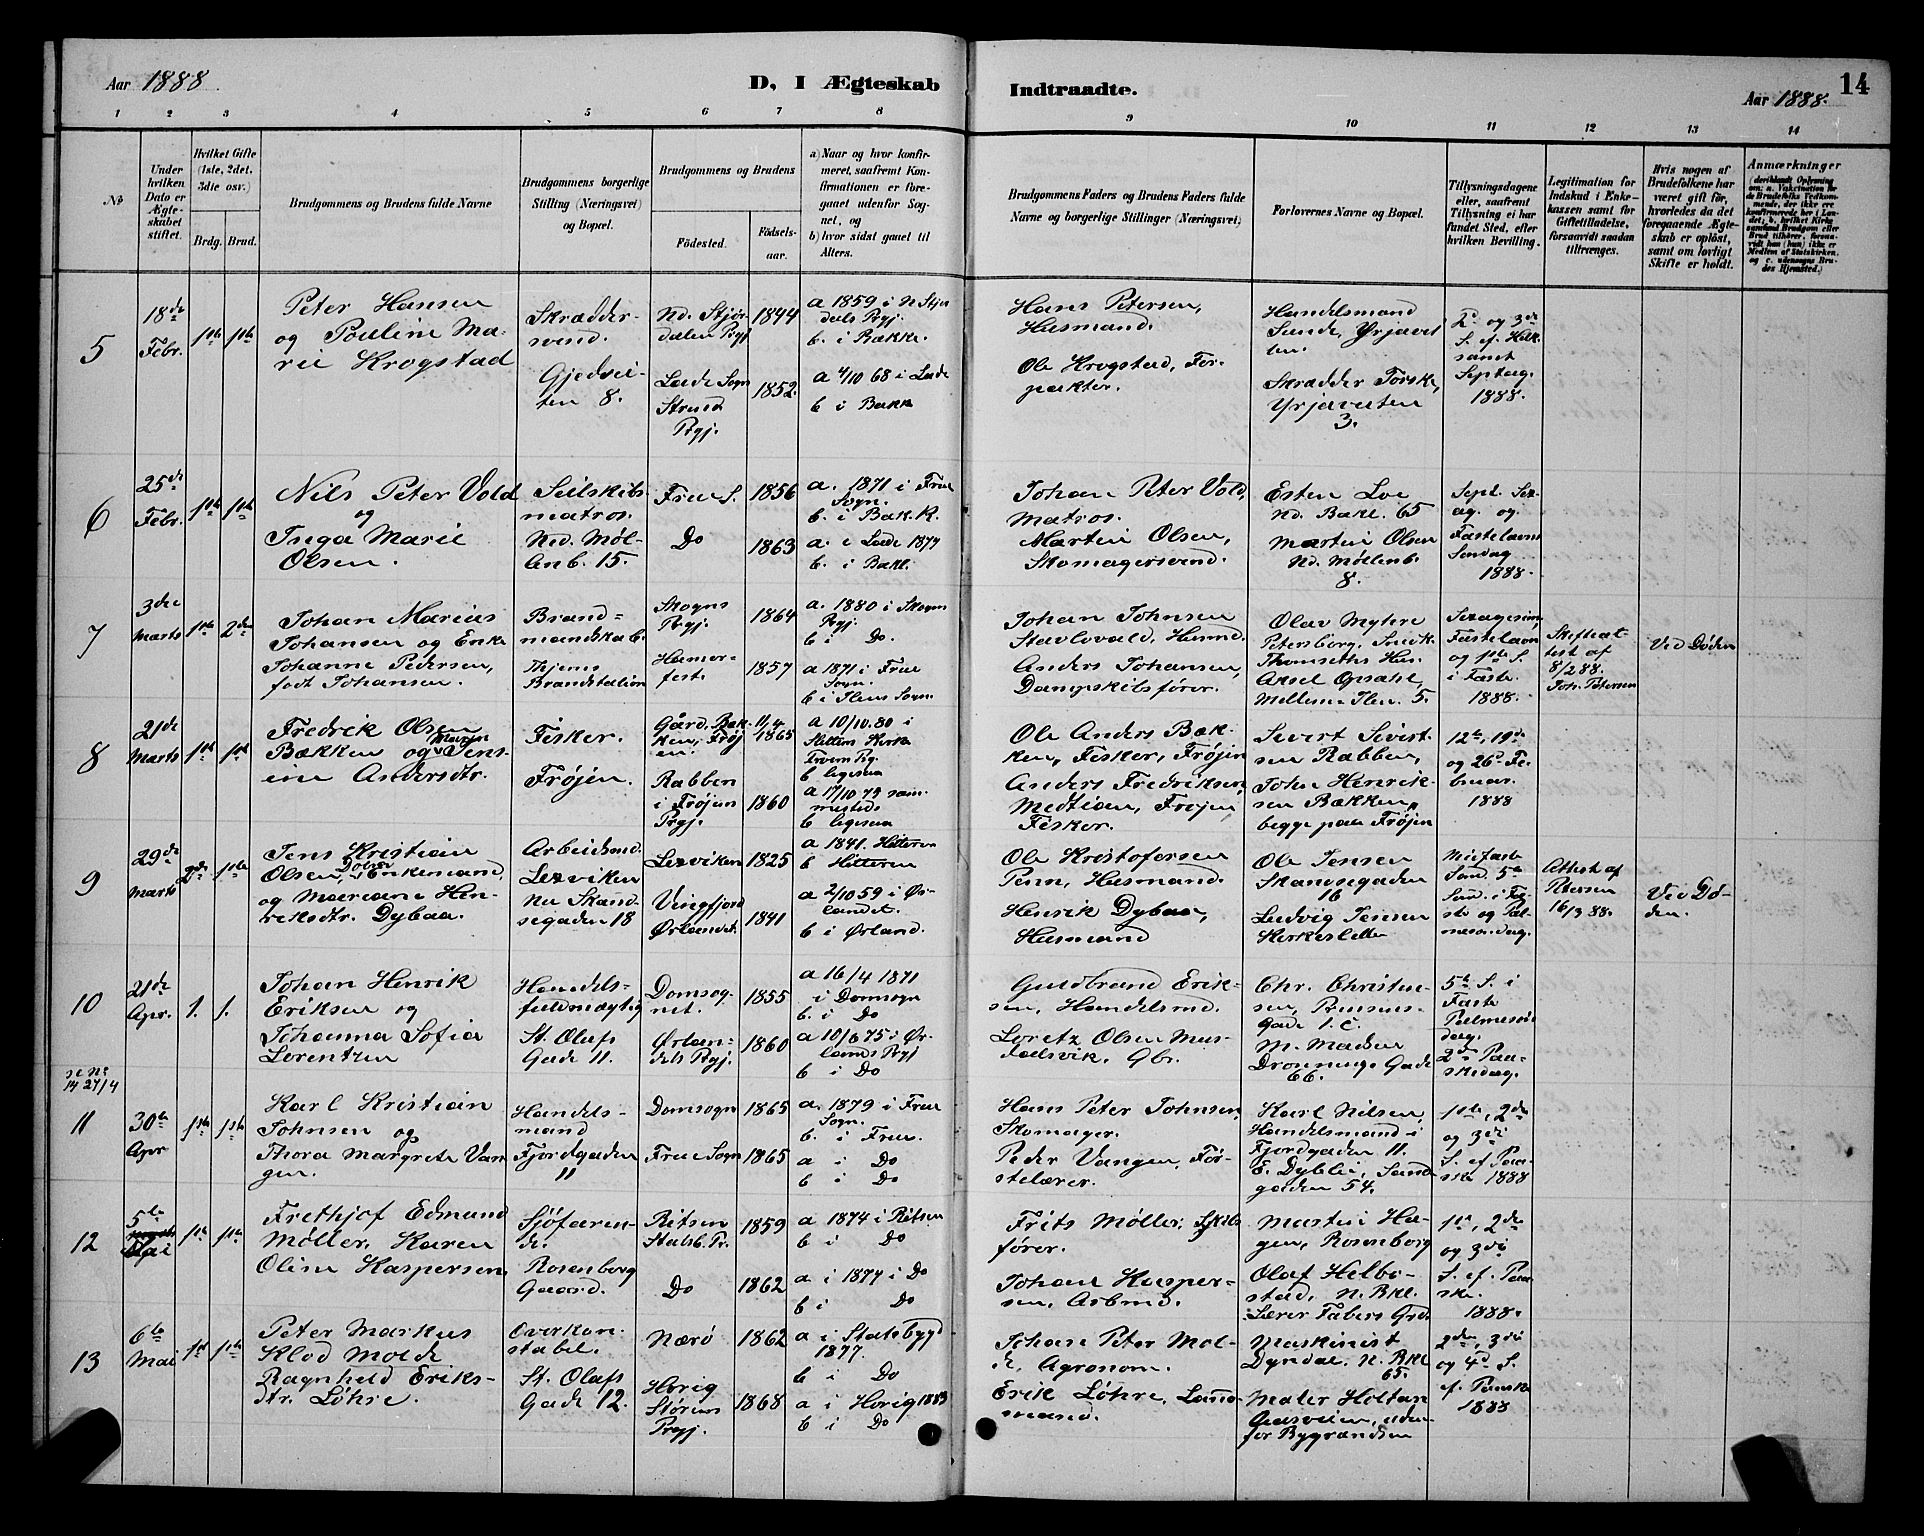 Aar 1888.
D, I Ægteskab Indtraadte.
14
Aar 1888.
1 2 3 4 5 6 7 8 9 10 11 12 13 14
№
Under hvilken Dato er Ægteskabet stiftet.
Hvilket Gifte (1ste, 2det, 3die osv.)
Brdg. Brud.
Brudgommens og Brudens fulde Navne
Brudgommens borgerlige Stilling (Næringsvei) og Bopæl.
Brudgommens og Brudens
Födested.
Födselsaar.
a) Naar og hvor konfirmeret, saafremt Konfirmationen er foregaaet udenfor Sognet, og
b) hvor sidst gaaet til Alters.
Brudgommens Faders og Brudens Faders fulde Navne og borgerlige Stillinger (Næringsvei)
Forlovernes Navne og Bopæl.
Tillysningsdagene eller, saafremt Tillysning ei har fundet Sted, efter hvilken Bevilling.
Legitimation for Indskud i Enkekassen samt for Giftetilladelse, forsaavidt saadan tiltrænges.
Hvis nogen af Brudefolkene har været gift för, hvorledes da det foregaaende Ægteskab er oplöst, samt om lovligt Skifte er holdt.
Anmærkninger
5
18de Febr.
1ste 1ste
Peter Hansen
og Pouline Ma-
rie Krogstad
Skrædder-
svend.
Gjedvei-
ten 8.
Nd. Stjör-
dalen Prgj
Lade Sogn
Strind
Prgj.
1844
1852.
a 1859 i N Stjør
dals Prgj.
b. i Bakke.
a 4/10 68 i Lade
b i Bakk
Hans Petersen,
Husmand.
Ole Krogstad, For-
pakter.
Handelsmand
Sunde, Yrjavei
ten.
Skrædder Forsk,
Yrjaveiten
3.
2den og 3die
S. ef. H3k.
samt
Septuag.
1888.
6
25de Febr.
1ste 1ste
Nils Peter Vold
og
Inga Marie
Olsen.
Seilskibs-
matros.
Ned. Møl-
lenb. 15.
Frue S.
Do
1856
1863
a. 1871 i Frue
Sogn.
b. i Bak. K.
a. i Lade 1877
b. i Bakl.
Johan Peter Vold,
Matros.
Martin Olsen,
Skomagersvend.
Esten Loe
Nd. Bakl. 65
Martin Olsen
Nd. Møllenb.
8.
Sept. Sex-
ag. og
Fastelavns
Søndag
1888.
7
3die Marts
1ste 2den
Johan Marius
Johansen og Enke
Johanne Pedersen,
født Johansen.
Brand-
mandskab.
Thjems
Brandstation
Skogns
Prgj.
Hamer-
fest.
1864
1857
a. 1880 i Skogns
Prgj.
b i Do.
a 1871 i Frue
Sogn.
b i Ilens Sogn.
Johan Johnsen
Stavlovald, Husmd.
Anders Johansen,
Dampskibsfører.
Olav Myhre
Petersborg, Snedk.
Thomseths Hus.
Axel Opsahl,
Mellem Ilen 5.
Sexagesim
Fastelavn
og 1ste S.
i Faste
1888.
Skifteat-
test af
8/2 88.
Joh. Petersen
Ved Døden
8
21de Marts
1ste 1ste
Fredrik Olsen
Bækken og Maren Jens-
ine Andersdtr.
Fisker.
Frøjen.
Gård. Bæk-
ken, Frøj
en
Rabben
i Frøjens
Prgj.
11/4
1865
1860
a 10/10.80 i
Sletten Kirke
b ligesaa
a 17/10 79 sam-
mesteds
b ligesaa
Ole Anders Bæk-
ken, Fisker, Frøjen
Anders Fredriksen
Medtien, Frøjen,
Fisker.
Sivert Sivert-
sen Rabben,
John Henrik-
sen Bækken,
begge paa Frøjen
12te, 19de
og 26de Fe-
bruar.
1888
9
29de Marts
2den 1ste
Jens Kristian
Olsen Dolsen, Enkemand,
og Mariane Hen-
riksdtr. Dybaa.
Arbeidsmd.
Lexviken
nu Skand-
segaden 18
Lexviken
Vingfjord
Ørlandet.
1825
1841
a 1841. Hitteren
b Hitteren
a 2/10 59 i Ør-
landet.
b i Ørland.
Ole Kristofersen
Penn, Husmand.
Henrik Dybaa,
Husmand
Ole Jensen
Skandsegaden
16
Ludvig Jensen
Kirkesletten
Midfaste
Sønd. 5te
Sønd. i Fa-
ste og Pal-
mesøndag.
Attest af
Petersen
16/3 88.
Ved Dø-
den.
10
21de Apr.
1. 1.
Johan Henrik
Eriksen og
Johanna Sofia
Lorentzen
Handels-
fuldmægtig
St. Olafs
Gade 11.
Domsog-
net.
Ørlan-
dets Prgj.
1855
1860
a 16/4 1871
i Domsogn
b. i Do
a 10/6 75 i Ør-
lands Prgj
b i Do
Guldbrand Erik-
sen, Handelsmd.
Loretz Olsen Mus-
dalsvik, Gbr.
Chr. Christen-
sen, Prinsens-
Gade 1. C.
M. Madsen
Dronnings Gade
66.
5te S. i
Faste
Palmesøn
dag.
2den Paa-
skedag.
se No
14 27/4
11
30te Apr
1ste 1ste
Karl Kristian
Johnsen og
Thora Margrete Van
gen.
Handels-
mand
Fjordgaden
11
Domsogn
Frue Sogn
1865
1865
a. 1879 i Frue
Sogn.
b. i Frue.
a i Do
b i Do
Hans Peter Johnsen,
Skomager.
Peder Vangen, For-
stelærer.
Karl Nilsen,
Handelsmand i
Fjordgaden 11.
E. Dyblie, Sand
gaden 54.
1ste, 2den
og 3die
S. ef. Paa-
ske 1888
12
5te Mai
1ste 1ste
Frethjof Edmund
Møller, Karen
Oline Kaspersen
Sjöfaren-
de.
Rosenborg
Gaard.
Ritsen
Stadsb. Pr.
Do
1859
1862
a 1874 i Ritsen
b i Do
a i 1877 i Do
b i Do
Frits Møller, Skibs
fører.
Johan Kasper-
sen, Arbmd.
Martin Ha-
gen, Rosenborg
Olaf Helbo-
stad, N. Bkl.
Lærer Fabers Grd.
1ste, 2den
og 3die
S. ef. Paa-
ske.
1888.
13
6te Mai
1ste 1ste
Peter Markus
Klod Molde
Ragnhild Eriks-
dtr. Løhre.
Overkon-
stabel.
St. Olafs
Gade 12.
Nærö
Horig
Størens
Prgj.
1862
1868
a i Stadsbygd
1877
b i Do
a i Horig 1883
b i Do
Johan Peter Mol-
de, Agronom.
Erik Løhre, Land-
mand.
Maskinist
Dyndal, N. Bkl
65.
Maler Holtan
Aasveien, uden-
for Bygrændsen
2den, 3die
og 4de S.
ef. Paaske
1888